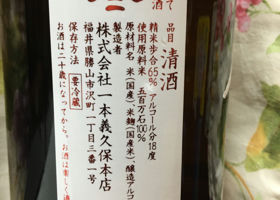 酒
て
品目 清酒
精米歩合65% アルコール分18度
使用原料米 五百万石100%
原材料名 米(国産)、米麹(国産米)、醸造アルコ
製造者
株式会社一本義久保本店
福井県勝山市沢町一丁目三番一号
保存方法 要冷蔵
お酒は二十歳になってから。お酒は楽しく適